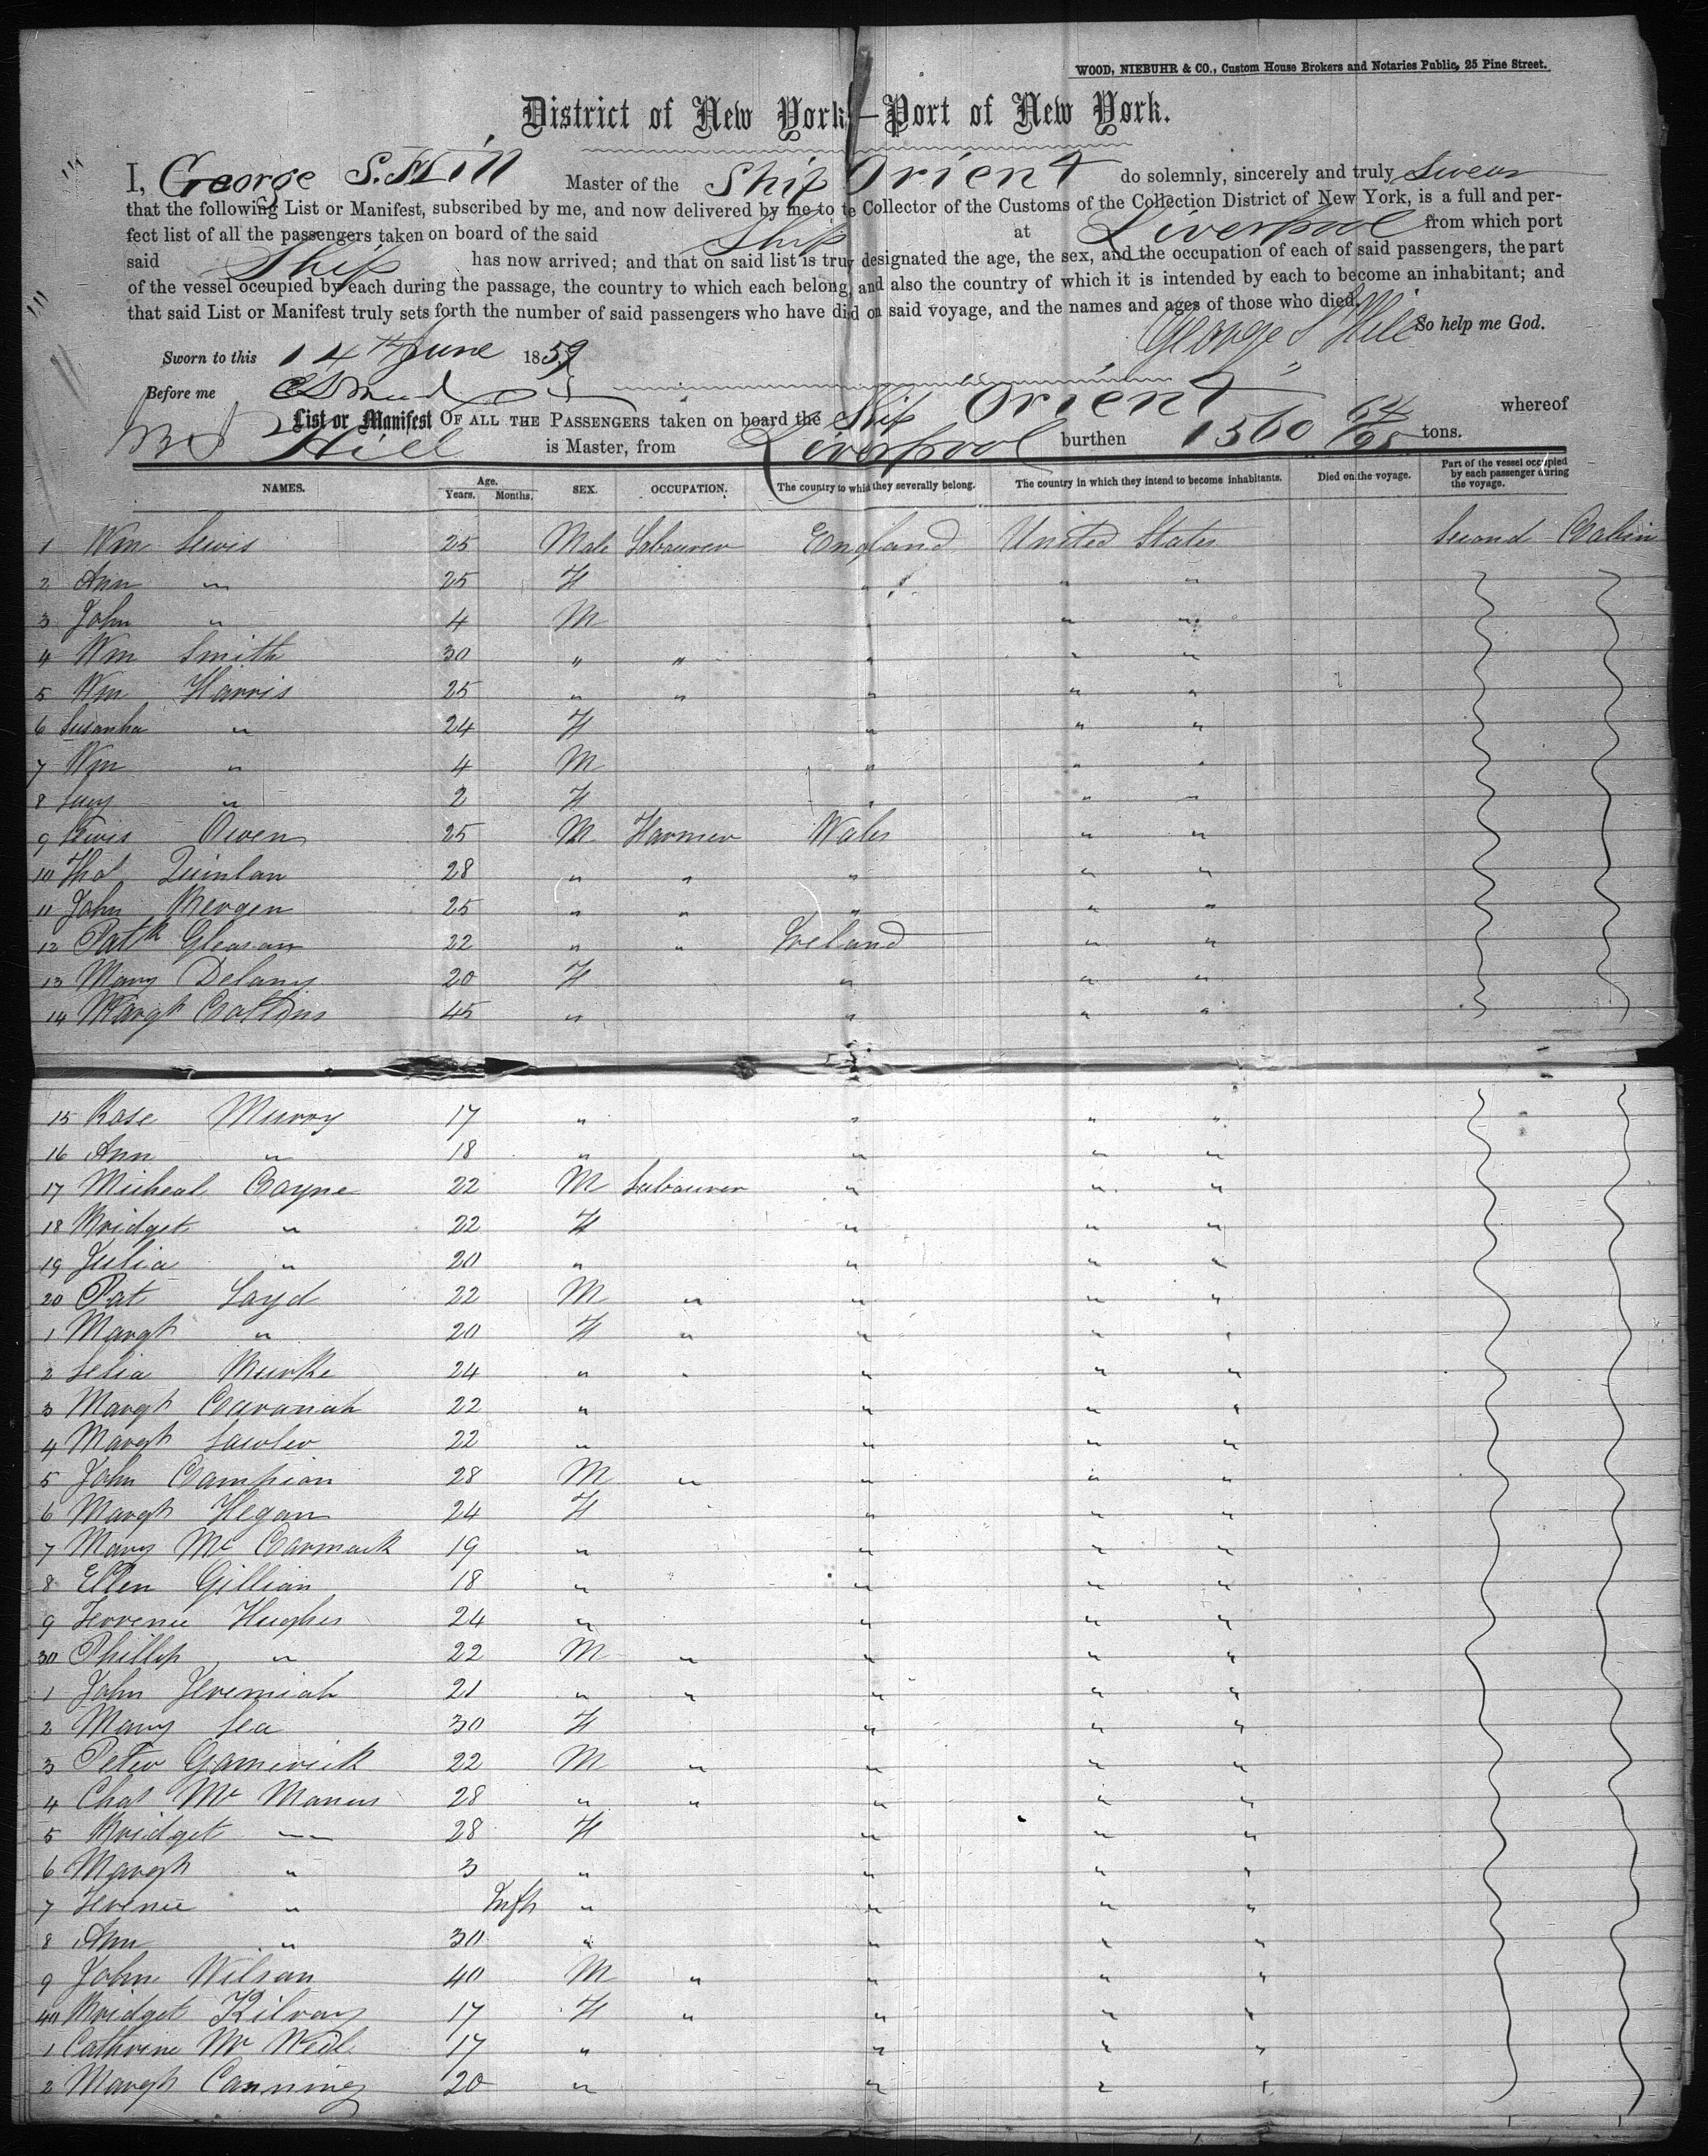 WOOD, NIEBUHR & CO., Custom House Brokers and Notaries Public, 25 Pine Street.
District of New York—Port of New York.
I, George S. Hill Master of the Ship Orient do solemnly, sincerely and truly Swear
that the following List or Manifest, subscribed by me, and now delivered by me to te Collector of the Customs of the Collection District of New York, is a full and per-
fect list of all the passengers taken on board of the said Ship at Liverpool from which port
said Ship has now arrived; and that on said list is truly designated the age, the sex, and the occupation of each of said passengers, the part
of the vessel occupied by each during the passage, the country to which each belong, and also the country of which it is intended by each to become an inhabitant; and
that said List or Manifest truly sets forth the number of said passengers who have died on said voyage, and the names and ages of those who died.
George S Hill So help me God.
Sworn to this 14th June 1859
Before me
List or Manifest OF ALL THE PASSENGERS taken on board the Ship Orient whereof
Hill is Master, from Liverpool burthen 1560 64/95 tons.
NAMES. Age. Years. Months. SEX. OCCUPATION. The country to which they severally belong. The country in which they intend to become inhabitants. Died on the voyage. Part of the vessel occupied by each passenger during the voyage.
1 Wm Lewis 25 Male Labourer England United States Second Cabin
2 Ann " 25 F " " "
3 John " 4 M " " "
4 Wm Smith 30 " " " " "
5 Wm Harris 25 " " " " "
6 Susanha " 24 F " " "
7 Wm " 4 M " " "
8 Lucy " 2 F " " "
9 Lewis Owen 25 M Farmer Wales " "
10 Thos Quinlan 28 " " " " "
11 John Bergen 25 " " " " "
12 Patk Gleason 22 " " Ireland " "
13 Mary Delany 20 F " " "
14 Margt 45 " " " "
15 Rose Murry 17 " " " "
16 Ann " 18 " " " "
17 Micheal Coyne 22 M Labourer " " "
18 Bridget " 22 F " " "
19 Julia " 20 " " " "
20 Pat Loyd 22 M " " " "
1 Margt " 20 F " " " "
2 Selia Burke 24 " " " " "
3 Margt Cavanah 22 " " " "
4 Margt Lawler 22 " " " "
5 John Campion 28 M " " " "
6 Margt Hegan 24 F " " "
7 Mary Mc Cormack 19 " " " "
8 Ellen Gillian 18 " " " "
9 Terrence Hughes 24 " " " "
30 Phillip " 22 M " " " "
1 John Jeremiah 21 " " " " "
2 Mary Lea 30 F " " "
3 Peter 22 M " " " "
4 Chas Mc Manus 28 " " " " "
5 Bridget " 28 F " " "
6 Margt " 3 " " " "
7 " Infh " " " "
8 Ann " 30 " " " "
9 John Wilson 40 M " " " "
40 Bridget Kilroy 17 F " " " "
1 Cathrine Mc Neil 17 " " " "
2 Margt Canning 20 " " " "